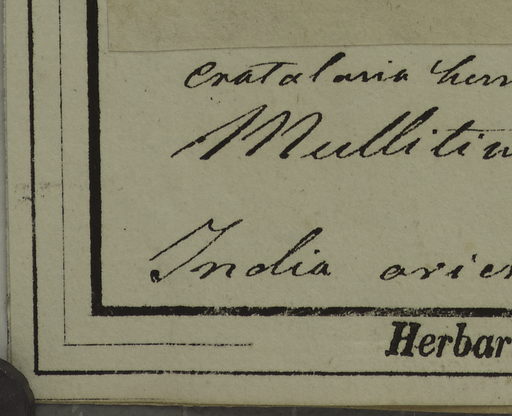 Cratalaria herr
Mullitin
India orien
Herbar